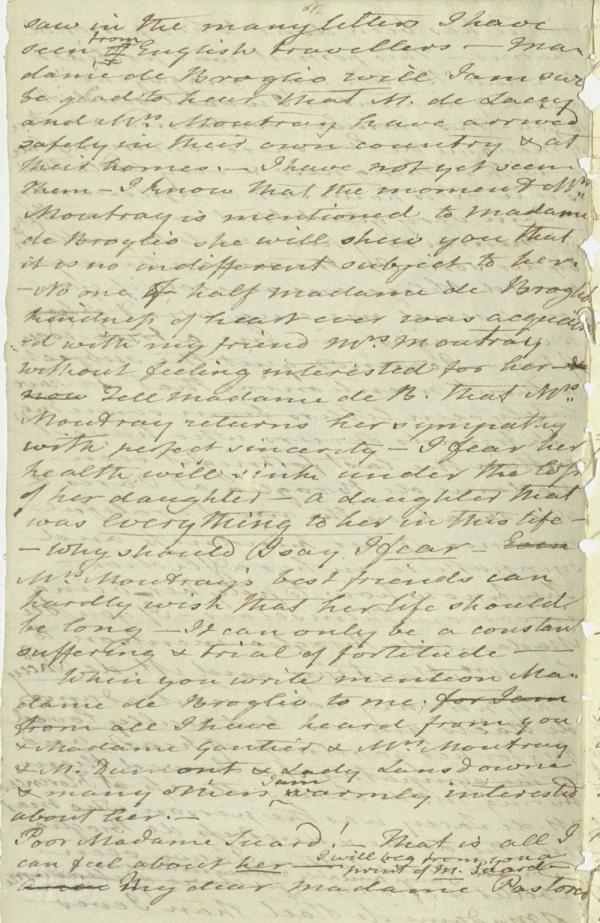 saw in the many letters I have
seen from English travellers — Ma-
dame de Broglio will I am sure
be glad to hear that M. de Lacy
and Mrs. Moutray have arrived
safely in their own country & at
their homes. — I have not yet seen
them — I know that the moment Mrs.
Moutray is mentioned to Madame
de Broglio she will shew you that
it is no indifferent subject to her.
— No one of half madame de Broglio's
kindness of heart ever was acquaint-
ed with my friend Mrs Moutray
without feeling interested for her — &
now Tell madame de B. that Mrs.
Moutray returns her sympathy
with perfect sincerity — I fear her
health will sink under the loss
of her daughter — a daughter that
was everything to her in this life —
— Why should I say I fear — Even
Mrs Moutray's best friends can
hardly wish that her life should
be long — It can only be a constant
suffering & trial of fortitude —
When you write mention Ma-
dame de Broglio to me. for I am
from all I have heard from you
& Madame Gautier & Mrs Moutray
& M. Dumont & Lady Lansdowne
& many others I am warmly interested
about her. —
Poor Madame Suard! — That is all I
can feel about her — I will beg from you a
print of M. Suard —
My dear madame Pastoret